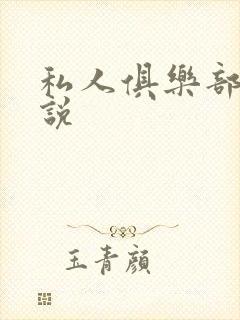 私人俱樂部
說
玉青顏